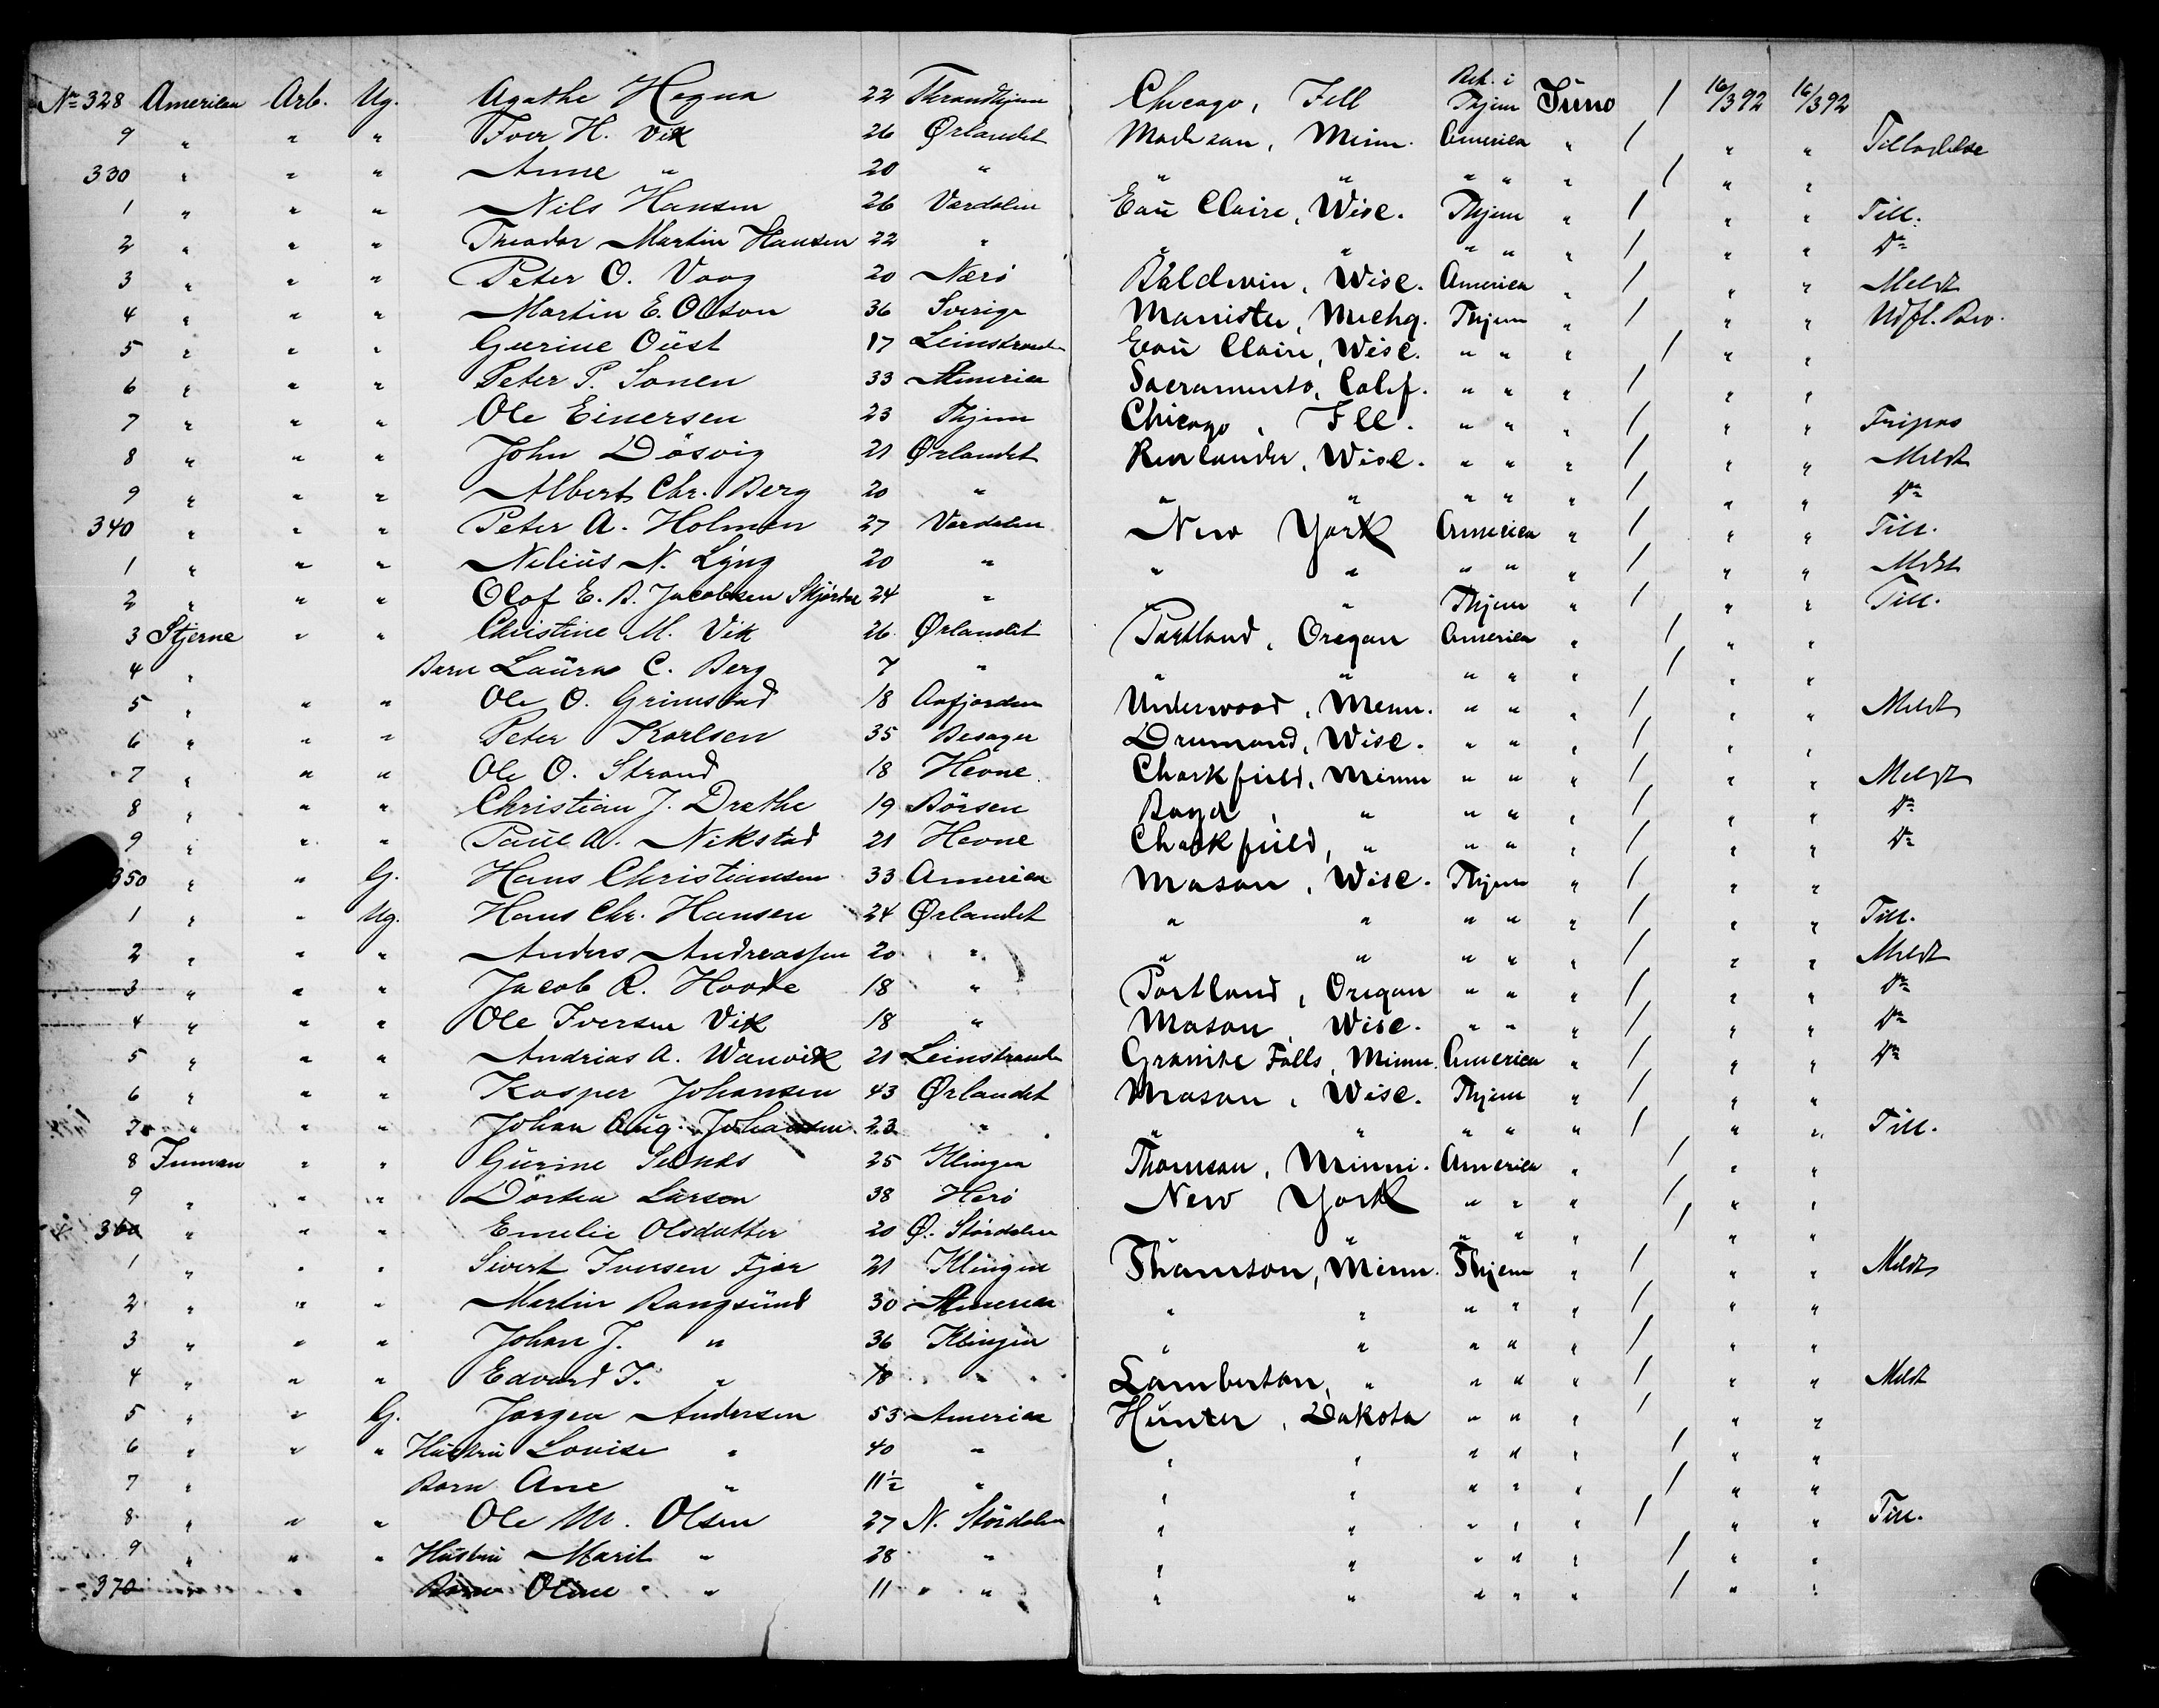 No 328 American Arb. Ug. Agathe Hegna 22 Throndhjem Chicago, Ill Bet. i Thjem Juno / 16/3 92 16/3 92
9 " " " Iver H. Vik 26 Ørlandet Madison, Minn. America " / " " Tilladelse
330 " " " Anne " 20 " " " " " " / " "
1 " " " Nils Hansen 26 Værdalen Eau Claire, Wisc. Thjem " / " " Till.
2 " " " Theodor Martin Hansen 22 " " " " " " / " " Do
3 " " " Peter O. Vaag 20 Nærö Baldwin, Wisc. America " / " " Meldt
4 " " " Martin E. Olson 36 Sverige Manister, Michg. Thjem " / " "
5 " " " Gurine Oust 17 Leinstranden Eau Claire, Wisc. " " " / " "
6 " " " Peter P. Sonen 33 America Sacramento, Calif. " " " / " "
7 " " " Ole Einersen 23 Thjem Chicago, Ill. " " " / " " Fripas
8 " " " John Dösvig 21 Ørlandet Rinlander, Wisc. " " " / " " Meldt
9 " " " Albert Chr. Berg 20 " " " " " " / " " Do
340 " " " Peter A. Holmen 27 Værdalen New York America " / " " Till.
1 " " " Nelius N. Lyng 20 " " " " " " / " " Meldt
2 " " " Olof E. B. Jacobsen 24 " " " Thjem " / " " Till.
3 Stjerne " " Christine M. Vik 26 Ørlandet Portland, Oregon America " / " "
4 " Barn Laura C. Berg 7 " " " " " " / " "
5 " " " Ole O. Grimstad 18 Aafjorden Underwood, Minn. " " " / " " Meldt
6 " " " Peter Karlsen 35 Besager Drumond, Wisc. " " " / " "
7 " " " Ole O. Strand 18 Hevne Charkfield, Minn " " " / " " Meldt
8 " " " Christian J. Drathe 19 Börsen Boyd, " " " " / " " Do
9 " " " Paul A. Nikstad 21 Hevne Charkfield, " " " " / " " Do
350 " " G. Hans Christiansen 33 America Mason, Wisc. Thjem " / " "
1 " " Ug. Hans Chr. Hansen 24 Ørlandet " " " " " / " " Till.
2 " " " Anders Andreassen 20 " " " " " " / " " Meldt
3 " " " Jacob R. Hoode 18 " Portland, Oregon " " " / " " Do
4 " " " Ole Iversen Vik 18 " Mason, Wisc. " " " / " " Do
5 " " " Andrias A. Wanvik 21 Leinstranden Granite Falls, Minn. America " / " " Do
6 " " " Kasper Johansen 43 Ørlandet Mason, Wisc. Thjem " / " "
7 " " " Johan Aug. Johansen 23 " " " " " " / " " Till.
8 Inman " " Gurine Selnes 25 Klingen Thomson, Minni. America " / " "
9 " " " Dortea Larsen 38 Herö New York " " " / " "
360 " " " Emelie Olsdatter 20 Ø. Stördalen " " " " " / " "
1 " " " Sivert Iversen Fjær 21 Klingen Thomson, Minn. Thjem " / " " Meldt
2 " " " Martin Bangsund 30 America " " " " " / " "
3 " " " Johan J. " 36 Klingen " " " " " / " "
4 " " " Edvard I. " 18 " Lamberton, " " " " / " " Meldt
5 " " G. Jörgen Andersen 53 America Hunter, Dakota " " " / " "
6 " " " Hustru Louise " 40 " " " " " " / " "
7 " Barn Ane " 11 1/2 " " " " " " / " "
8 " " " Ole M. Olsen 27 N. Stördalen " " " " " / " " Till.
9 " " " Hustru Marit " 28 " " " " " " / " "
370 " " Barn Oline " 11 " " " " " " " / " "